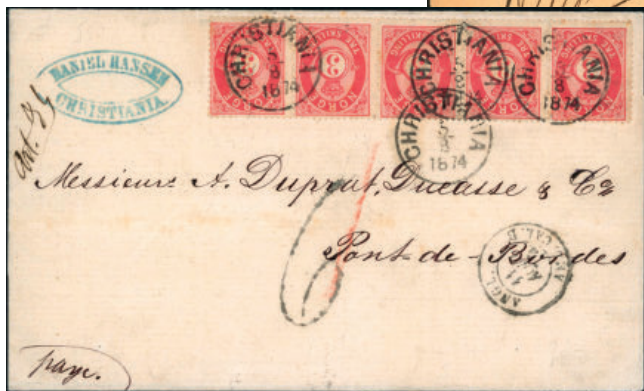 DANIEL HANSEN
CHRISTIANIA.
3 NORGE TRE SKILLING
CHRISTIANIA
5 8 1874
CHRISTIANIA
5 8 1874
CHRISTIANIA
5 8 1874
CHRISTIANIA
5 8 1874
Messieurs A. Duprat, Ducasse & Co
Pont-de-Bordes
ANGL. AMB. CAL. D
11
paye.